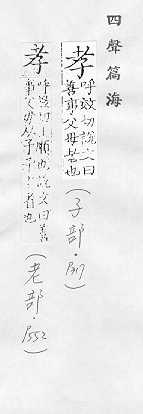 四聲篇海
孝 呼敎切說文曰
善事父母者也
(子部·P317)
孝 呼敎切順也說文曰善
事父母
(老部·P552)